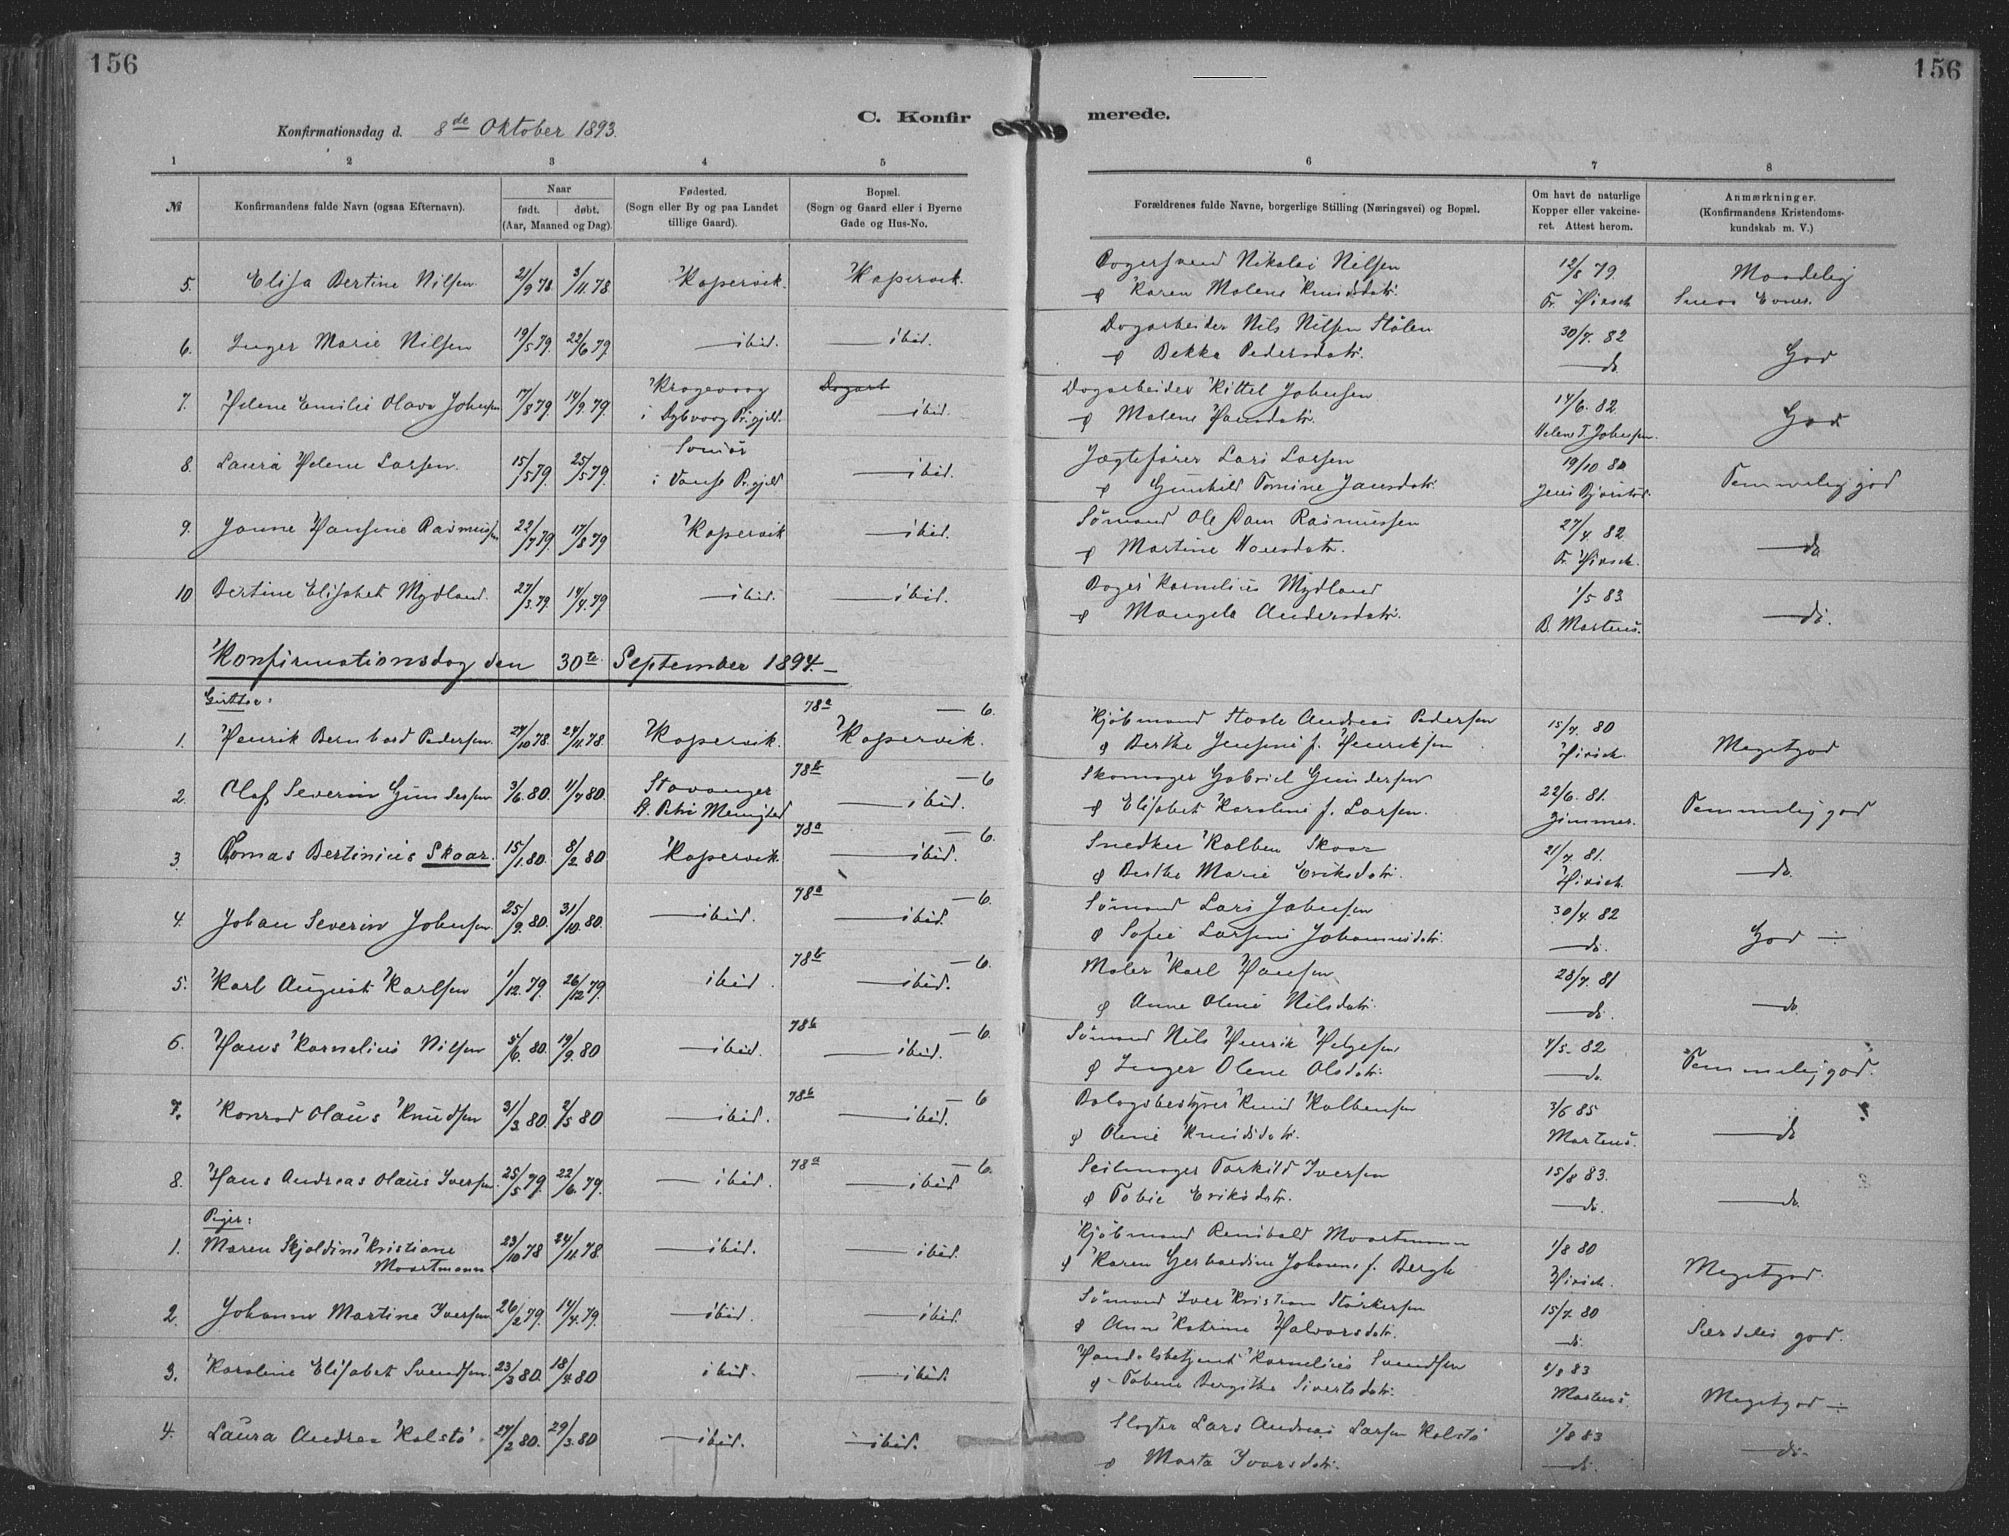 156
156
C. Konfir merede.
Konfirmationsdag d. 8de Oktober 1893.
1 2 3 4 5 6 7 8
№ Konfirmandens fulde Navn (ogsaa Efternavn). Naar født. døbt. (Aar, Maaned og Dag). Fødested. (Sogn eller By og paa Landet tillige Gaard). Bopæl. (Sogn og Gaard eller i Byerne Gade og Hus-No. Forældrenes fulde Navne, borgerlige Stilling (Næringsvei) og Bopæl. Om havt de naturlige Kopper eller vakcineret. Attest herom. Anmærkninger. (Konfirmandens Kristendomskundskab m. V.)
5. Elisa Bertine Nilsen 21/9 78. 3/11. 78 Kopervik. Kopervik. Nikolai Nilsen 12/8 79. Maadelig
& Karen Malene Knudsdatr. Fr. Hirsch Evner.
6. Inger Marie Nilsen 19/5 79. 22/6 79 — ibid. — ibid. Dagarbeider Nils Nilsen Stølen 30/7. 82 God
& Bekka Pedersdatr. — do.
7. Helene Emilie Olava Johnsen 17/8 79. 14/9. 79. i Dybvaag Pr.gjeld. — ibid. Dagarbeider Kittel Johnsen 14/6. 82 God
& Malene Hansdatr.
8. Laura Helene Larsen. 15/5 79. 25/5 79. i Vanse Pr.gjeld — ibid. Jægtefører Lars Larsen 19/10 82 Temmelig god
& Gunhild Tomine Jansdatr.
9. Janne Hansine Rasmussen 22/7 79. 17/8 79 Kopervik — ibid. Sømand Ole Dam Rasmussen 27/4. 82 — do
& Martine Fr. Hirsch.
10 Bertine Elisabet Mydland. 27/3. 79. 14/4. 79 — ibid. — ibid. Bager Kornelius Mydland 1/5 83. — do.
& Mangela Andersdatr. B. Martens.
Konfirmationsdag den 30te September 1894. —
Gutter:
1. Henrik Bernhard Pedersen. 24/10 78. 24/11. 78 Kopervik. 78a — 6. Kopervik. Kjøbmand Andreas Pedersen 15/7. 80 Megetgod
& Berthe Jensine f. Henriksen Hirsch.
2. Olaf Severin Gundersen 3/6. 80. 11/7 80. Stavanger St. Petri Menighed 78b — 6 — ibid. Skomager Gabriel Gundersen 22/6. 81. Temmelig god
& Elisabet Karoline f. Larsen. Zimmer.
3 Tomas Bertinius Skaar. 15/1. 80. 8/2 80 Kopervik. 78a — 6. — ibid. Snedker Kolben Skaar 21/7. 81. — do.
& Berthe Marie Eriksdatr. Hirsch.
4. Johan Severin Johnsen. 25/9. 80. 31/10. 80. — ibid. 78a — 6. — ibid. Sømand Lars Johnsen 30/4. 82 God —
& Sofie Larsine Johannesdatr. — do.
5. Karl August Karlsen 1/12. 79. 26/12 79. ibid. 78b — 6. — ibid. Maler Karl Hansen 28/7. 81 — do.
& Anne Oline Nilsdatr. — do.
6. Hans Kornelius Nilsen 5/6. 80. 19/9. 80 — ibid. 78b — 6. — ibid. Sømand Nils Henrik Helgesen 4/5. 82 Temmelig god.
& Inger Olene Olsdatr. — do.
7. Konrad Olaus Knudsen 31/3. 80. 2/5 80 — ibid. 78b — 6 — ibid. Knud Kolbensen 3/6 85 — do
& Oline Knudsdatr. Martens.
8. Hans Andreas Olaus Iversen. 25/5 79. 22/6. 79. — ibid. 78a — 6. — ibid Seilmager Torkild Iversen 15/8 83. — do.
& Tobie Eriksdatr. — do.
Piger:
1. Maren Skjoldine Kristiane Maartmann 23/10 78 24/11. 78. — ibid. — ibid. Kjøbmand Reinbald Maartmann 1/8 80 Megetgod.
& Karen Gerhardine Johanne f. Bergh Hirsch.
2. Johanne Martine Iversen. 26/2 79. 14/4. 79. — ibid. — ibid. Sømand Iver Kristian Størkersen 15/7. 80 Særdeles god.
& Anne Katrine Halvorsdatr. do.
3. Karoline Elisabet Svendsen. 23/3 80. 18/4. 80 ibid. — ibid. Handelsbetjent Kornelius Svendsen 83 Megetgod —
& Tobine Bergithe Sivertsdatr. Martens.
4. Laura Andrea Kolstø. 24/2 80. 29/3. 80 — ibid. — ibid. Slagter Lars Andreas Larsen Kolstø 1/8 83 — do.
& Marta Ivarsdatr. — do.